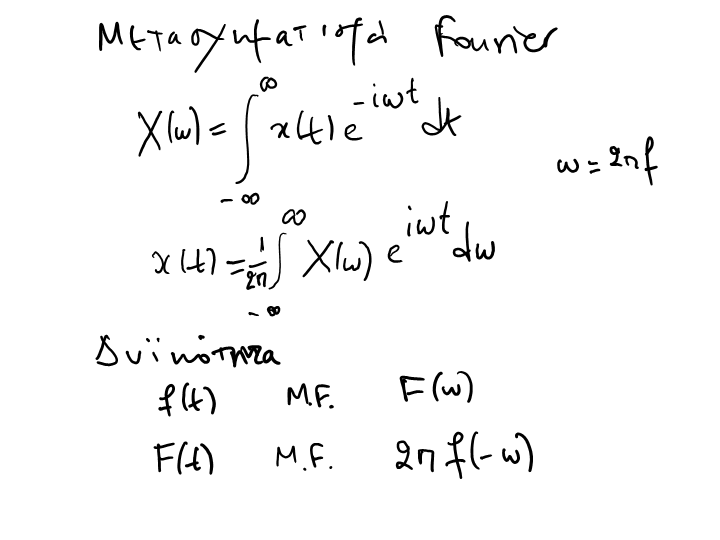 Μετασχηματισμοί Fourier
X(ω) = ∫_{-∞}^{∞} x(t) e^{-iωt} dt
ω = 2πf
x(t) = 1/2π ∫_{-∞}^{∞} X(ω) e^{iωt} dω
Δυϊκότητα
f(t) M.F. F(ω)
F(t) M.F. 2π f(-ω)